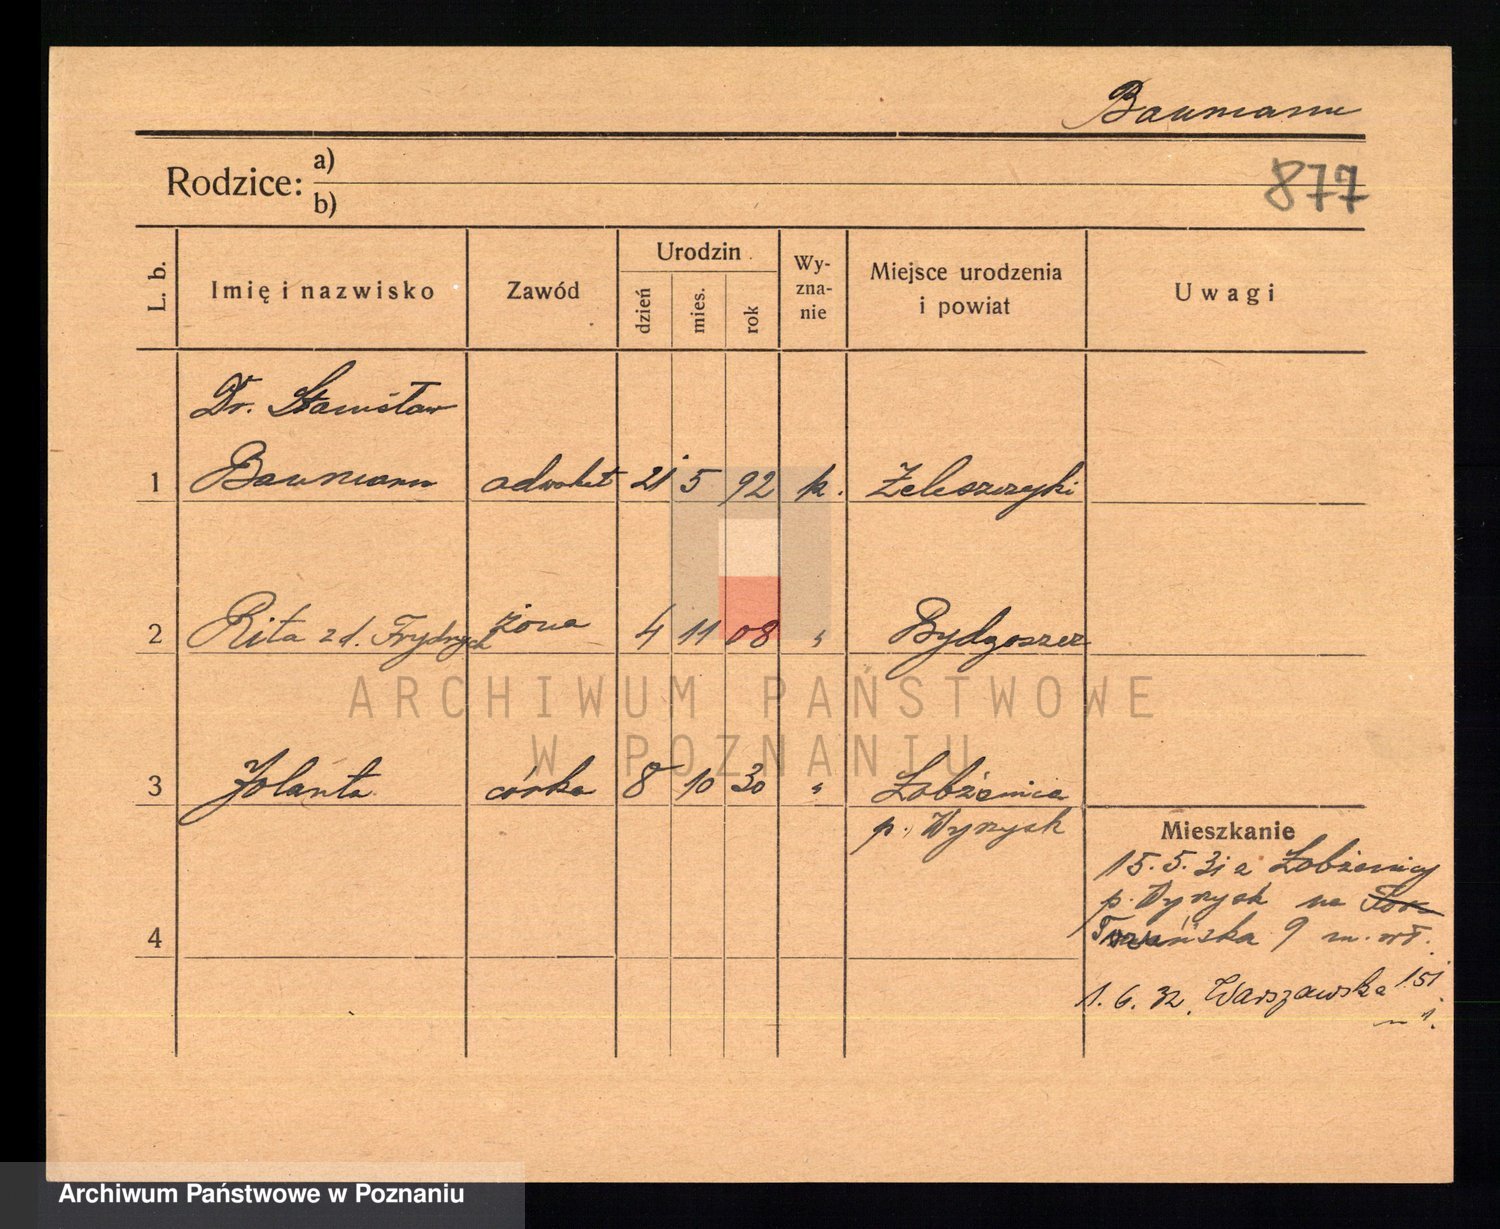 Baumann
Rodzice: a)
877
b)
L. b. Imię i nazwisko Zawód Urodzin dzień mies. rok Wy-zna-nie Miejsce urodzenia i powiat Uwagi
Dr. Stanisław
1 Baumann adwokat 21 5 92 k. Zeleszczyki
2 Rita z d. Frydrych żona 4 11 08 " Bydgoszcz
ARCHIWUM PAŃSTWOWE
W POZNANIU
3 Jolanta córka 8 10 30 " Łobżenica
p. Wyrzysk
Mieszkanie
15.5.31 z Łobżenicy
p. Wyrzysk na
4
9 m. wł.
1. 6. 32. Warszawska 151
m 1.
Archiwum Państwowe w Poznaniu